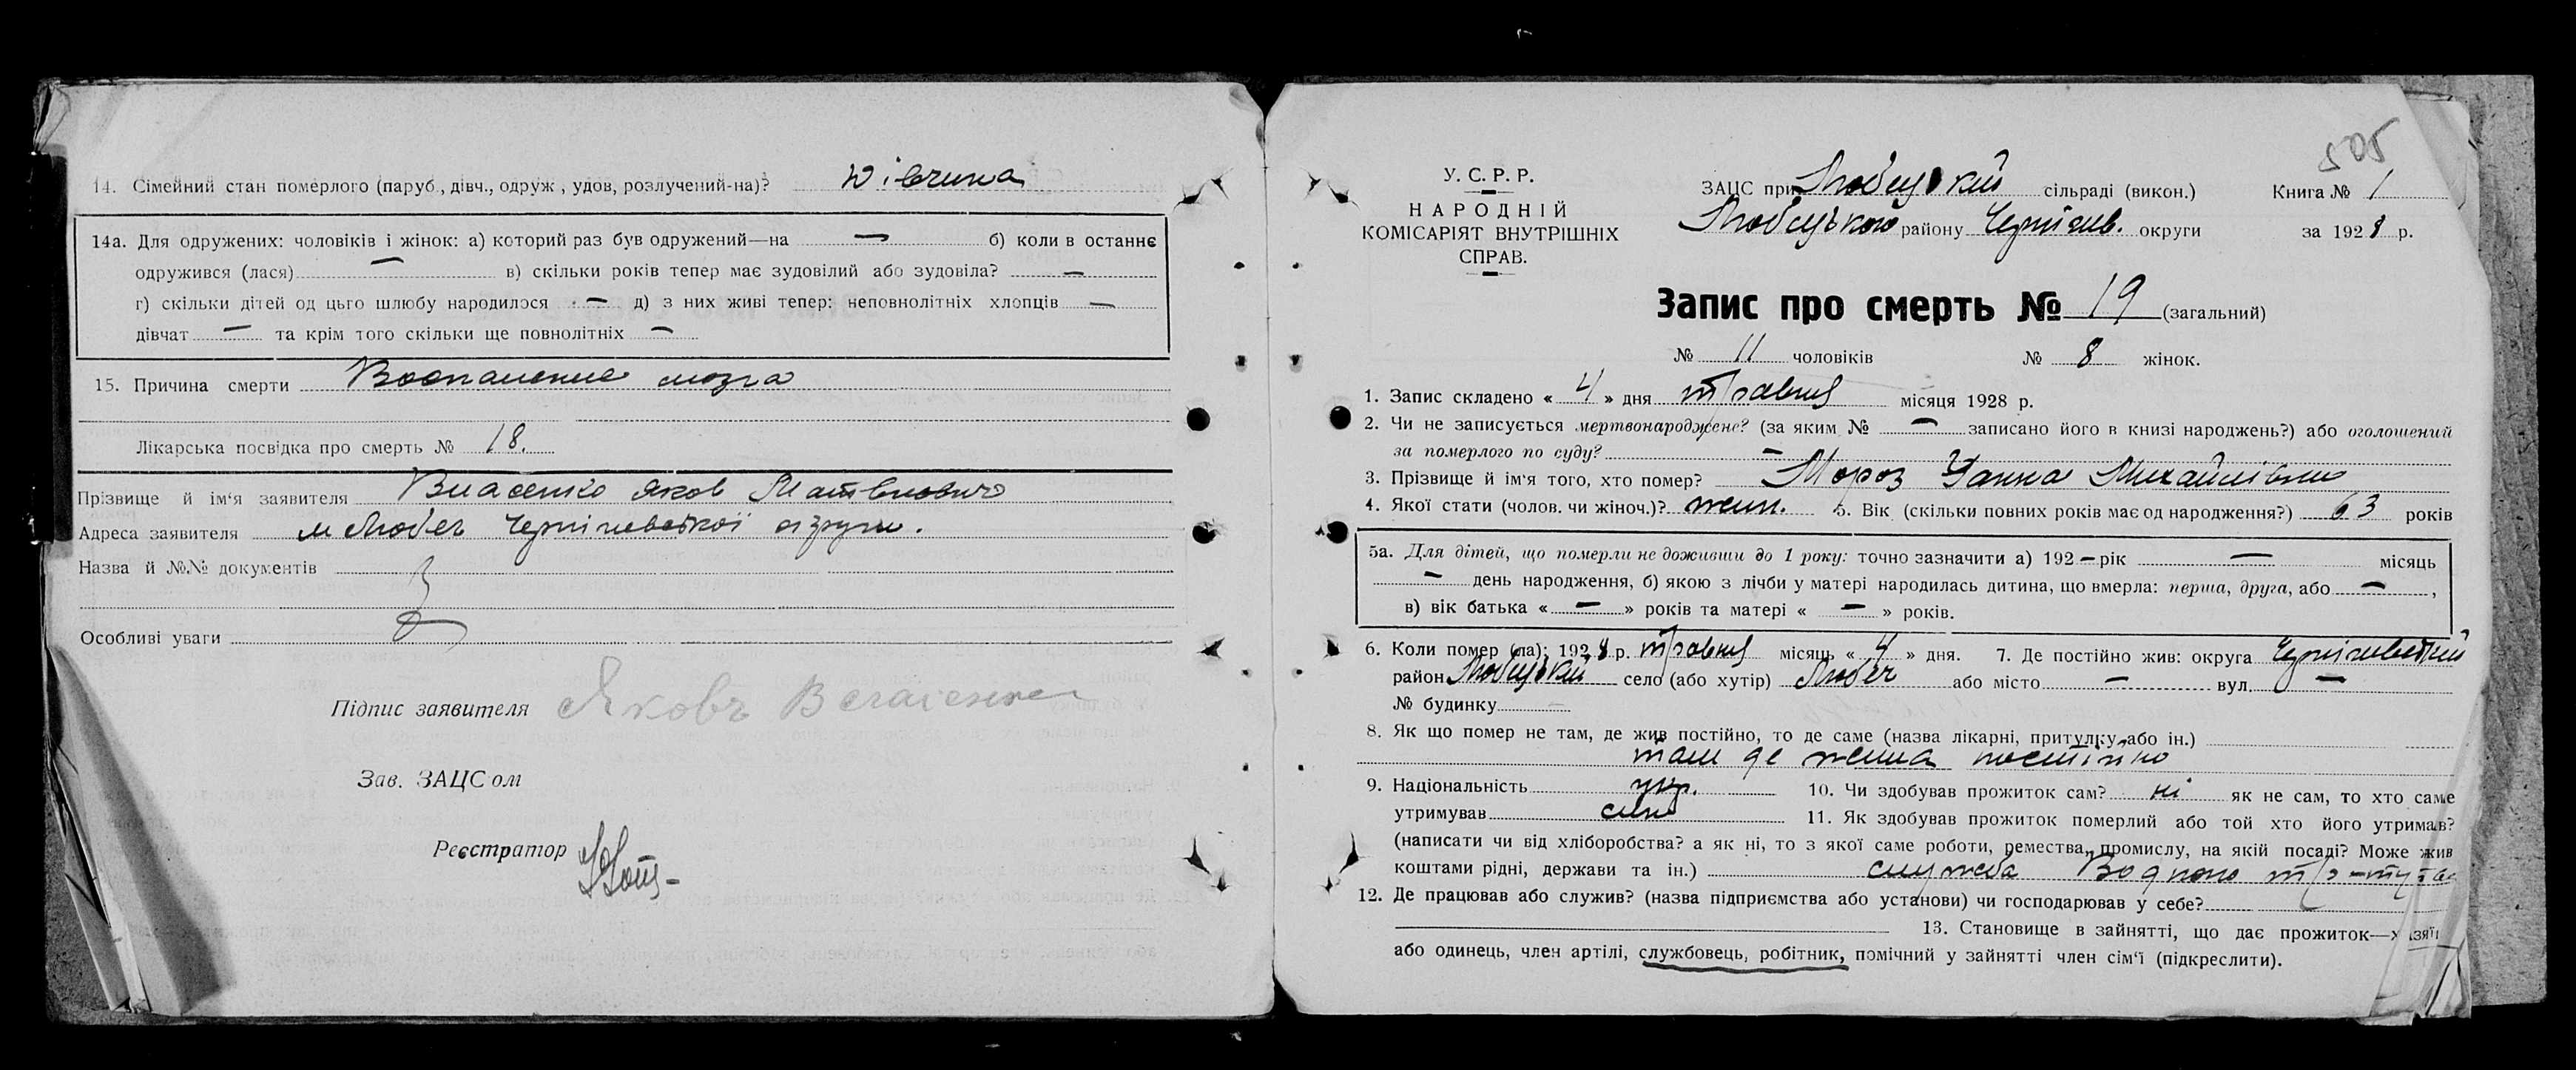 14. Сімейний стан померлого (паруб., дівч., одруж., удов, розлучений-на)? дівчина
14а. Для одружених: чоловіків і жінок: а) который раз був одружений—на — б) коли в останнє
одружився (лася) — в) скільки років тепер має зудовілий або зудовіла? —
г) скільки дітей од цього шлюбу народилося — д) з них живі тепер: неповнолітніх хлопців —
дівчат — та крім того скільки ще повнолітніх —
15. Причина смерти Воспаление мозга
Лікарська посвідка про смерть № 18.
Прізвище й ім'я заявителя Власенко Яков Матвіович
Адреса заявителя м Любеч Чернігевської округи.
Назва й №№ документів
Особливі уваги
Підпис заявителя Яковъ Власенко
Зав. ЗАЦСом
Реєстратор
505
У. С. Р. Р.
НАРОДНІЙ
КОМІСАРІЯТ ВНУТРІШНІХ
СПРАВ.
ЗАЦС при Любецькій сільраді (викон.) Книга № 1
Любецького району Чернігів. округи за 1928 р.
Запис про смерть № 19 (загальний)
№ 11 чоловіків № 8 жінок.
1. Запис складено « 4 » дня травня місяця 1928 р.
2. Чи не записується мертвонароджене? (за яким № — записано його в книзі народжень?) або оголошений
за померлого по суду? —
3. Прізвище й ім'я того, хто помер? Мороз Ганна Михайлівна
4. Якої стати (чолов. чи жіноч.)? жін. 5. Вік (скільки повних років має од народження?) 63 років
5а. Для дітей, що померли не доживши до 1 року: точно зазначити а) 192 — рік — місяць
— день народження, б) якою з лічби у матері народилась дитина, що вмерла: перша, друга, або — ,
в) вік батька « — » років та матері « — » років.
6. Коли помер (ла): 1928 р. травня місяць « 4 » дня. 7. Де постійно жив: округа Чернігевській
район Любецькій село (або хутір) Любеч або місто — вул. —
№ будинку —
8. Як що помер не там, де жив постійно, то де саме (назва лікарні, притулку або ін.)
там де жила постійно
9. Національність укр. 10. Чи здобував прожиток сам? ні як не сам, то хто саме
утримував син 11. Як здобував прожиток померлий або той хто його утримав?
(написати чи від хліборобства? а як ні, то з якої саме роботи, ремества, промислу, на якій посаді? Може жив
коштами рідні, держави та ін.) служба Водного
12. Де працював або служив? (назва підприємства або установи) чи господарював у себе?
13. Становище в зайнятті, що дає прожиток—хазяїн
або одинець, член артілі, службовець, робітник, помічний у зайнятті член сім'ї (підкреслити).